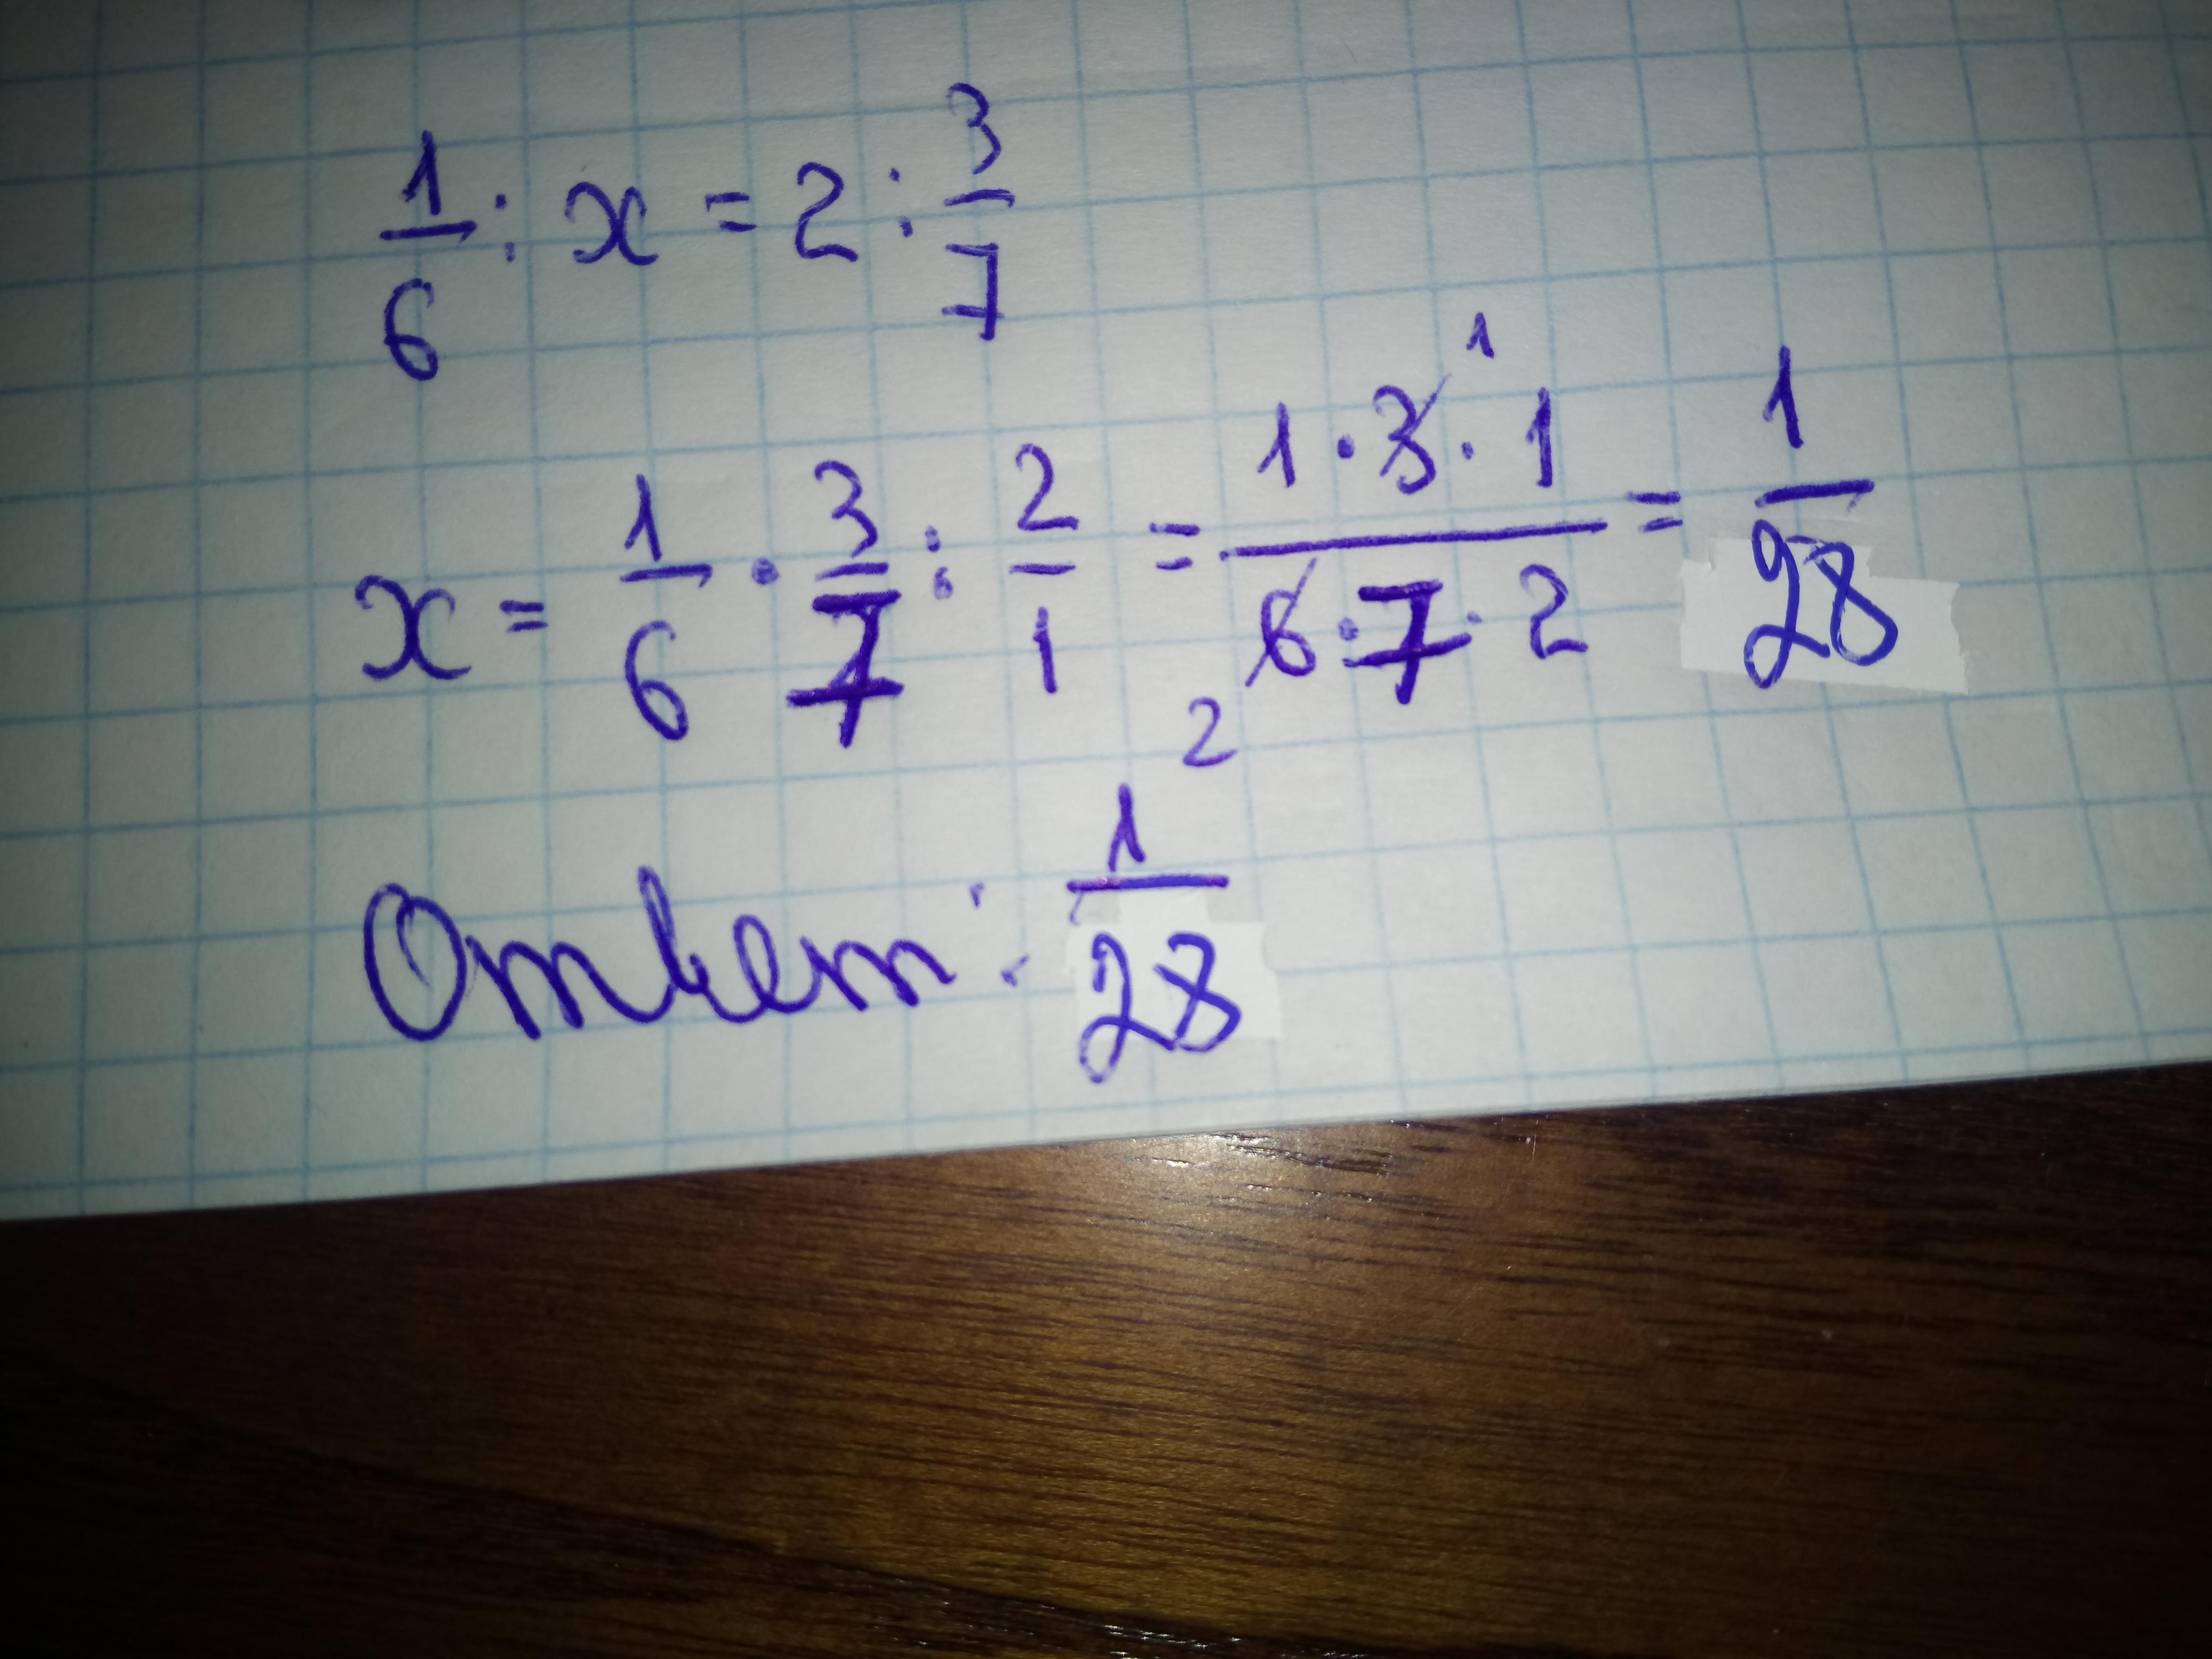 1/6 : x = 2 : 3/7
x = 1/6 · 3/7 : 2/1 = 1·3·1/6·7·2 = 1/28
1
2
Ответ: 1/28